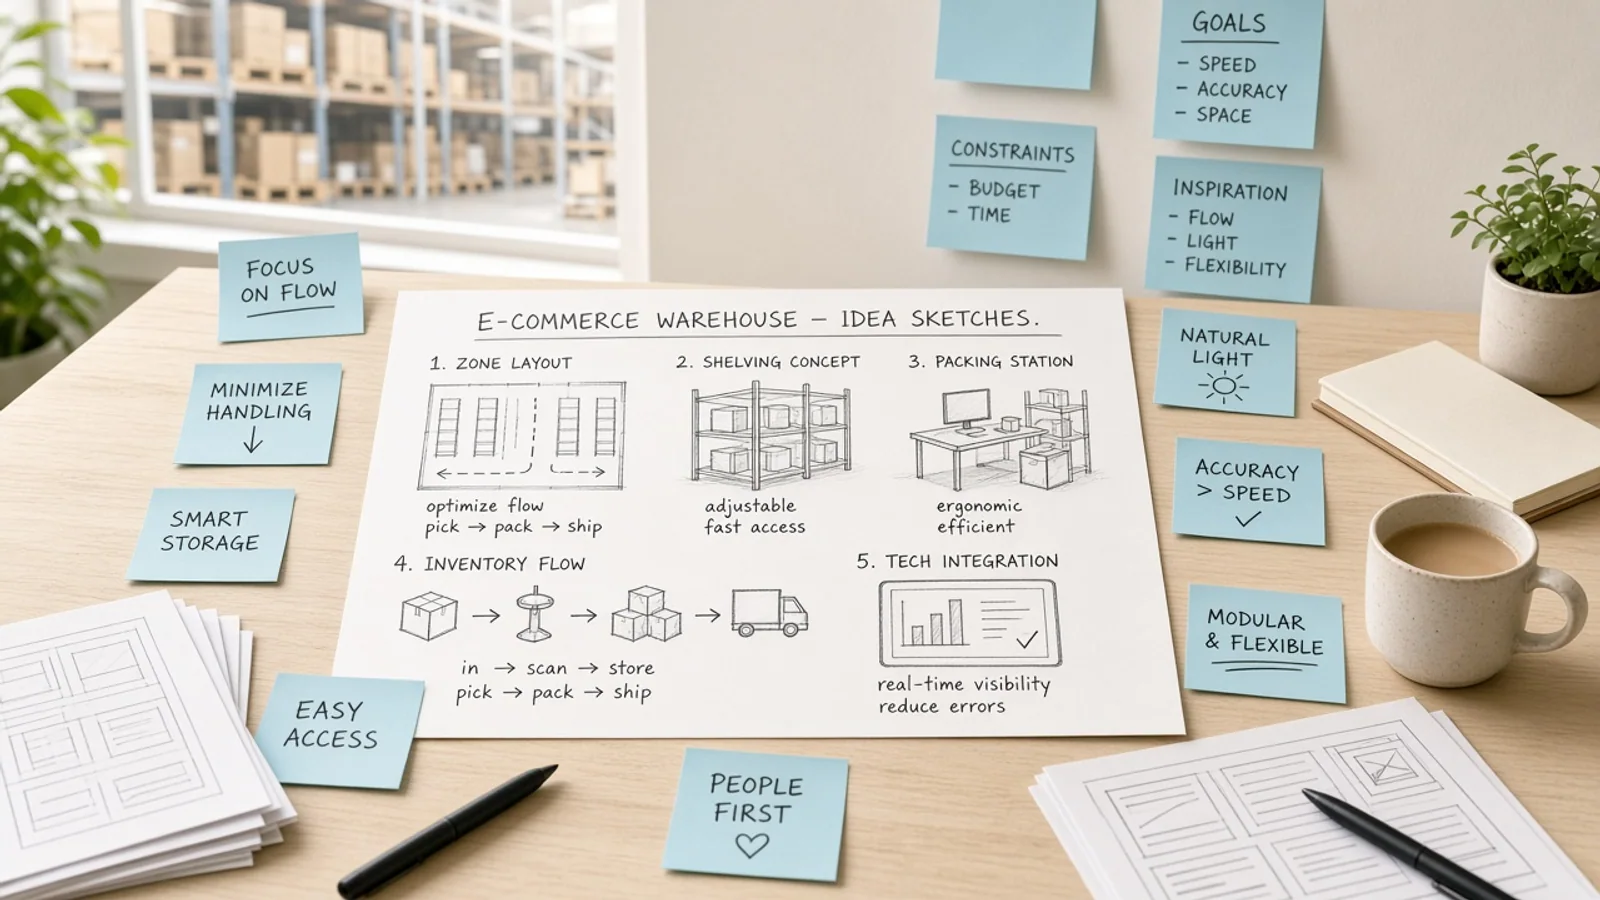 GOALS
- SPEED
- ACCURACY
- SPACE
CONSTRAINTS
- BUDGET
- TIME
INSPIRATION
- FLOW
- LIGHT
- FLEXIBILITY
FOCUS
ON FLOW
MINIMIZE
HANDLING
↓
SMART
STORAGE
EASY
ACCESS
E-COMMERCE WAREHOUSE – IDEA SKETCHES.
1. ZONE LAYOUT
optimize flow
pick → pack → ship
2. SHELVING CONCEPT
adjustable
fast access
3. PACKING STATION
ergonomic
efficient
4. INVENTORY FLOW
in → scan → store
pick → pack → ship
5. TECH INTEGRATION
real-time visibility
reduce errors
NATURAL
LIGHT
ACCURACY
> SPEED
✓
MODULAR
& FLEXIBLE
PEOPLE
FIRST
♡